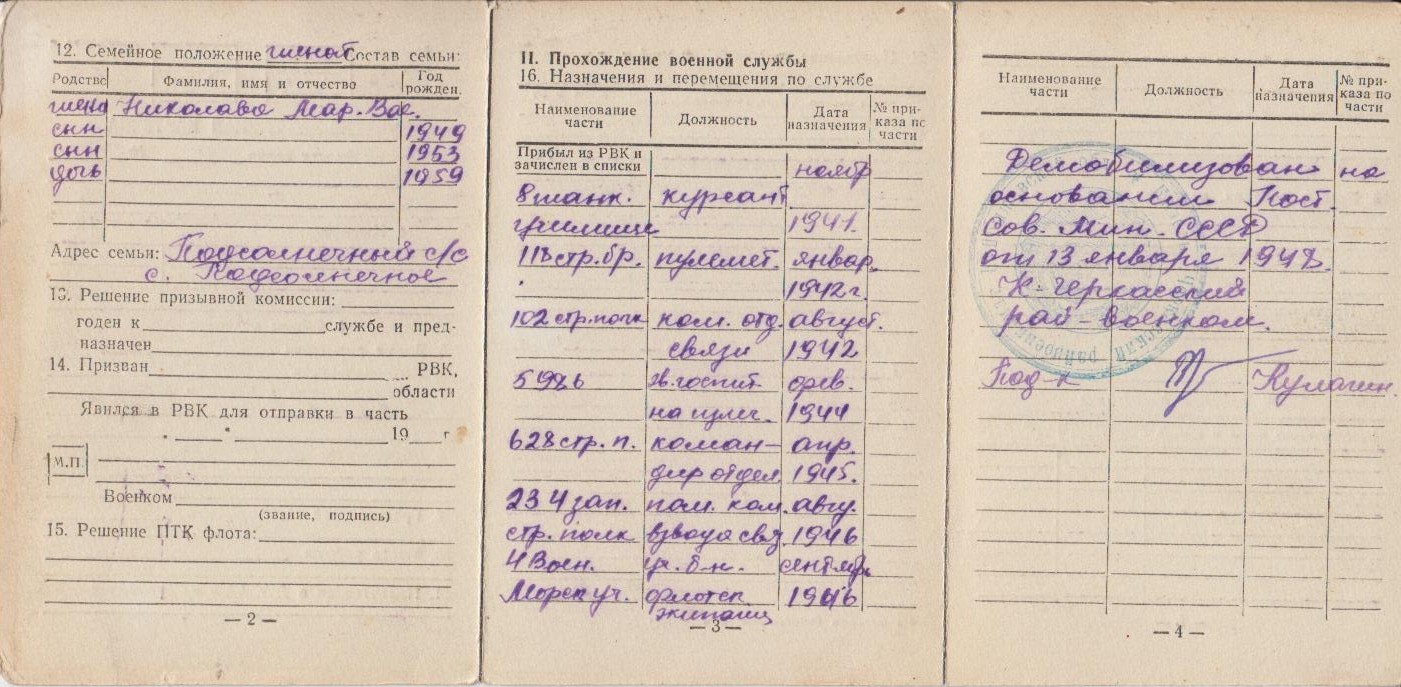 12. Семейное положение женат Состав семьи:
Родство Фамилия, имя и отчество Год рожден.
жена Николаева Мар. Вас.
сын 1949
сын 1953
дочь 1959
Адрес семьи: Подсолнечный с/с
с. Подсолнечное
13. Решение призывной комиссии:
годен к службе и пред-
назначен
14. Призван РВК,
области
Явился в РВК для отправки в часть
19 г
М.П.
Военком
(звание, подпись)
15. Решение ПТК флота:
— 2 —
II. Прохождение военной службы
16. Назначения и перемещения по службе
Наименование части Должность Дата назначения № при-каза по части
Прибыл из РВК и
зачислен в списки ноябр
8 танк. курсант
училище 1941.
118 стр. бр. пулемет. январ.
1942 г.
102 стр. полк ком. отд. август.
связи 1942
эв. госпит. фев.
на излеч. 1944
628 стр. п. коман- апр.
дир отдел. 1945.
234 зап. пом. ком. авгу.
стр. полк взвода свя. 1946
4 Воен. сентябр
Морск уч. флотск 1946
экипаж
— 3 —
Наименование части Должность Дата назначения № при-каза по части
Демобилизован на
основании Пост.
Сов. Мин. СССР
от 13 января 1948.
К-Черкасский
рай-военком.
Под-к Кулагин.
— 4 —